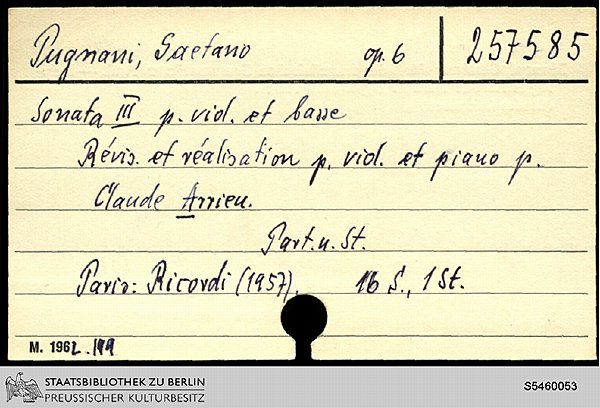 Pugnani, Gaetano op. 6 257585
Sonata III p. viol. et basse
Révis. et réalisation p. viol. et piano p.
Claude Arrieu.
Part. u. St.
Paris: Ricordi (1957). 16 S., 1 St.
M. 1962. 199
STAATSBIBLIOTHEK ZU BERLIN
PREUSSISCHER KULTURBESITZ
S5460053